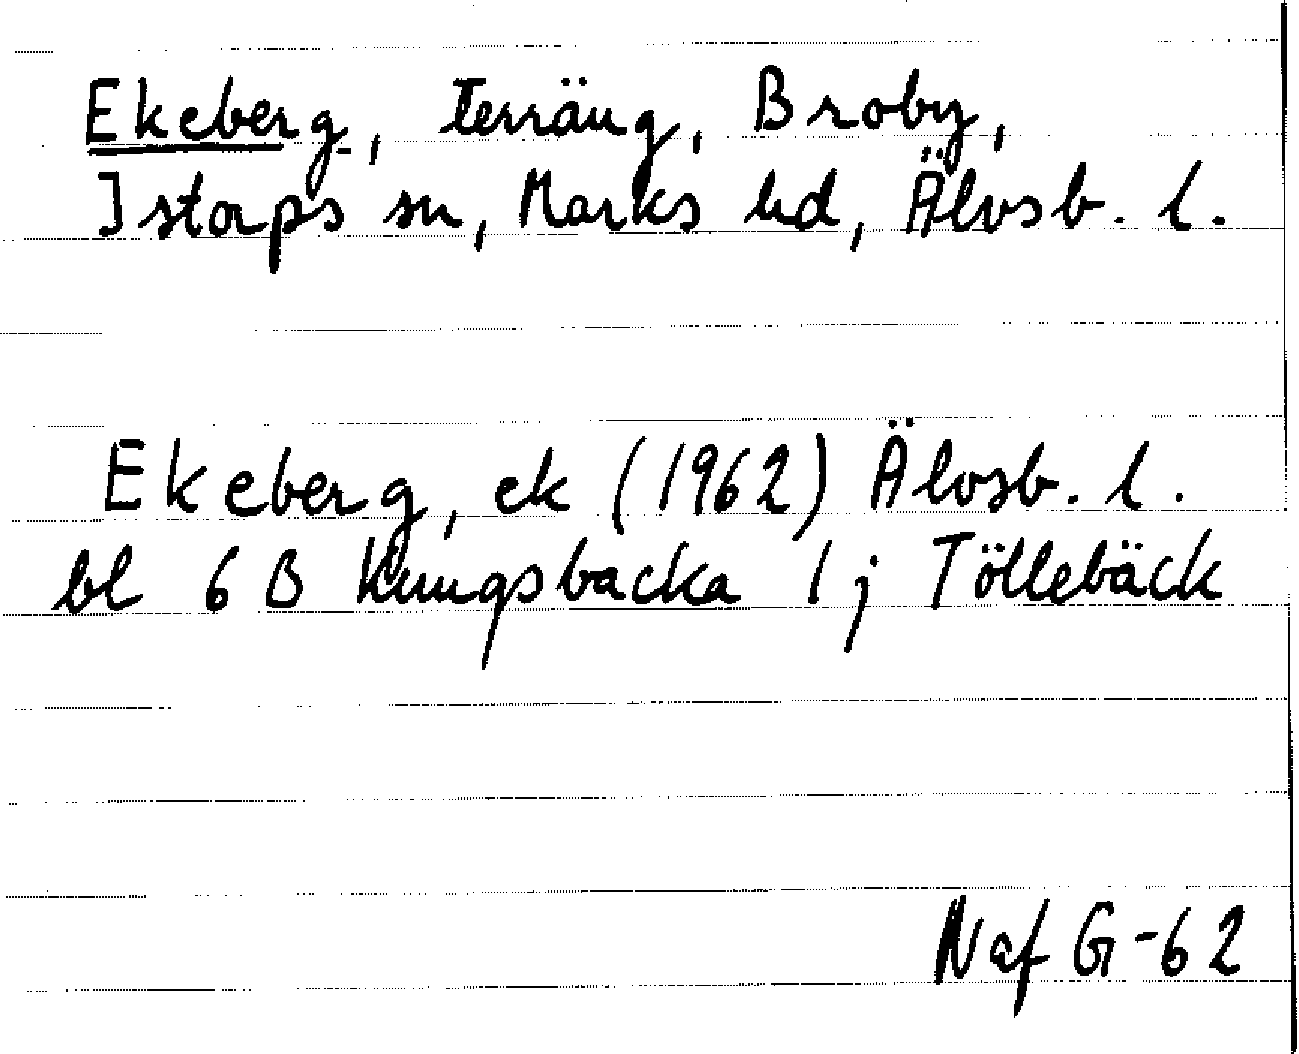 Ekeberg, terräng, Broby,
Istorps sn, Marks hd, Älvsb. l.
Ekeberg, ek (1962) Älvsb. l.
bl 6 B Kungsbacka 1 j Töllebäck
Naf G-62